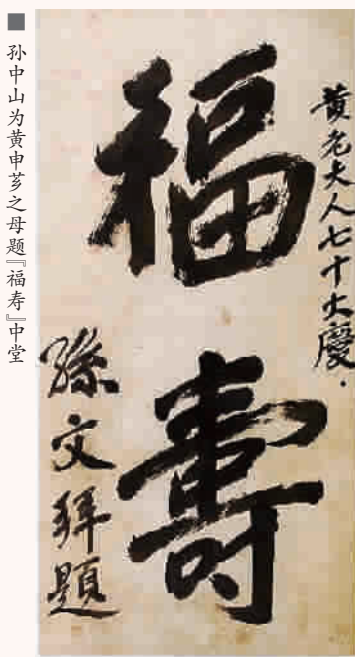 孙中山为黄申芗之母题『福寿』中堂
黄老夫人七十大慶
福壽
孫文拜題